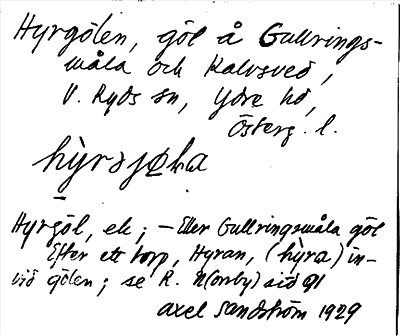 Hyrgölen, göl å Gullrings-
måla och Kalvsved,
V. Ryds sn, Ydre hd,
Österg. l.
Hyrgöl, ek; – Eller Gullringsmåla göl
Efter ett torp, Hyran, (hỳra) in-
vid gölen; se R. N(orby) sid 91
Axel Sandström 1929